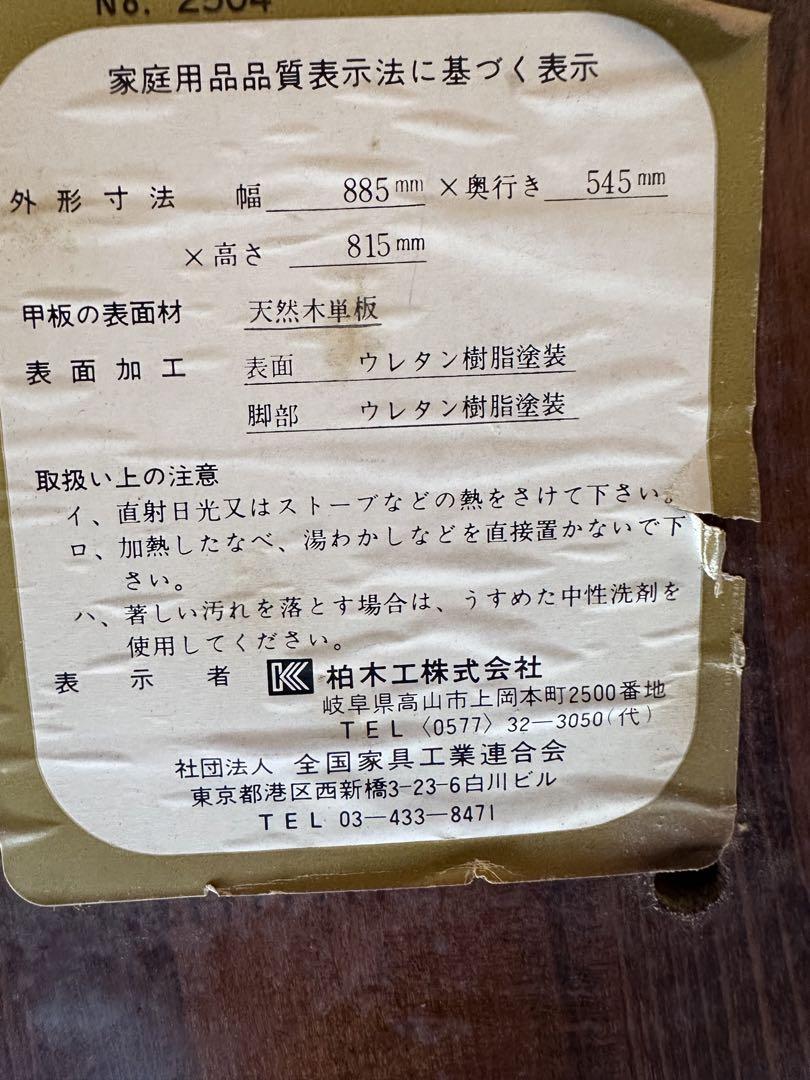 No. 2504
家庭用品品質表示法に基づく表示
外形寸法 幅 885mm ×奥行き 545mm
×高さ 815mm
甲板の表面材 天然木単板
表面加工 表面 ウレタン樹脂塗装
脚部 ウレタン樹脂塗装
取扱い上の注意
イ、直射日光又はストーブなどの熱をさけて下さい。
ロ、加熱したなべ、湯わかしなどを直接置かないで下
さい。
ハ、著しい汚れを落とす場合は、うすめた中性洗剤を
使用してください。
表示者 柏木工株式会社
岐阜県高山市上岡本町2500番地
TEL〈0577〉32—3050(代)
社団法人 全国家具工業連合会
東京都港区西新橋3-23-6白川ビル
TEL 03—433—8471